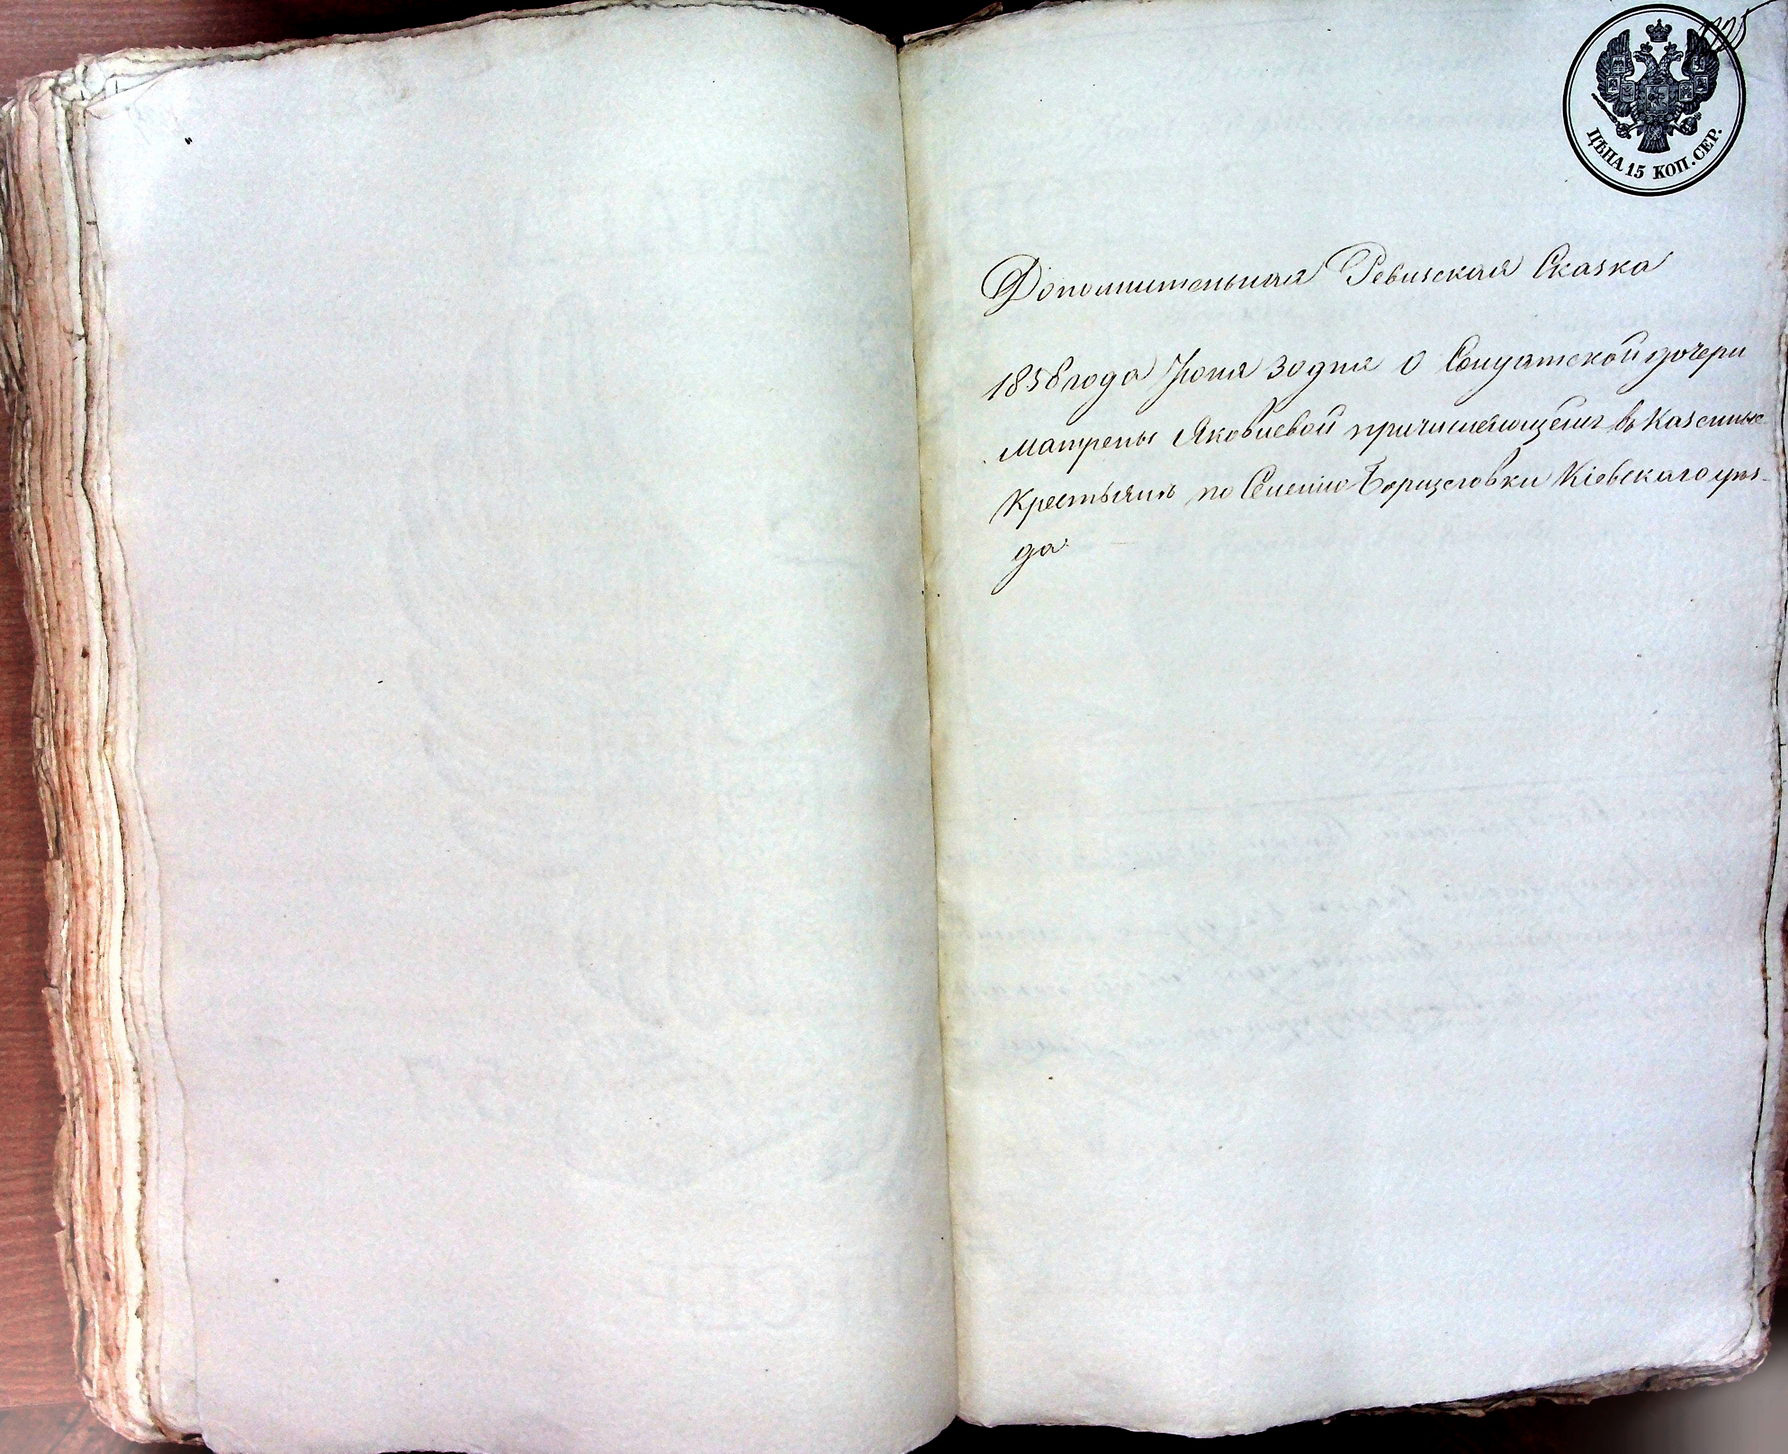 ЦѢНА 15 КОП. СЕР.
Дополнительная Ревизская Сказка
1858 года Июня 30 дня О Солдатской дочери
Матрены Яковлевой причисляющейся въ Казенные
Крестьяне по Селенію Борщаговки Кіевскаго уѣз-
да